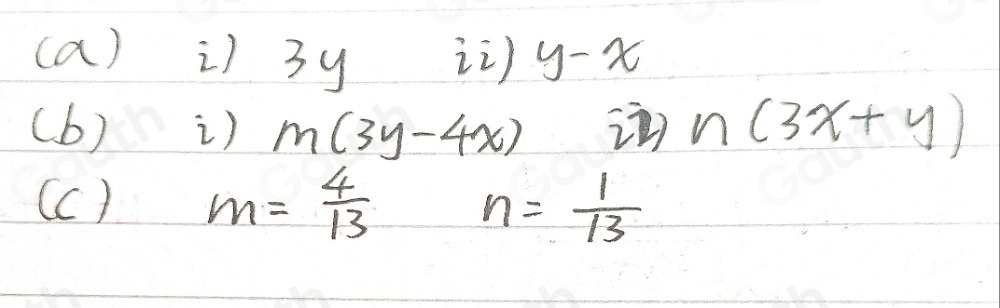 (a) i) 3y ii) y-x
(b) i) m(3y-4x) ii) n(3x+y)
(c) m= 4/13 n= 1/13